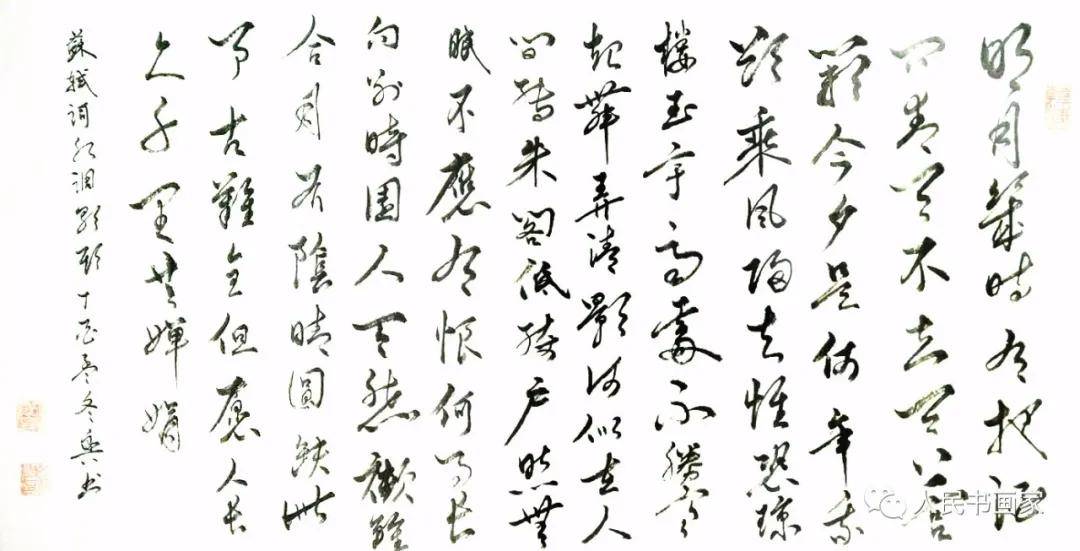 明月幾時有把酒
問青天不知天上宮
闕今夕是何年我
欲乘風歸去惟恐瓊
樓玉宇高處不勝寒
起舞弄清影何似在人
間轉朱閣低綺戶照無
眠不應有恨何事長
向別時圓人有悲歡離
合月有陰晴圓缺此
事古難全但願人長
久千里共嬋娟
蘇軾詞水調歌頭 冬 书
人民书画家